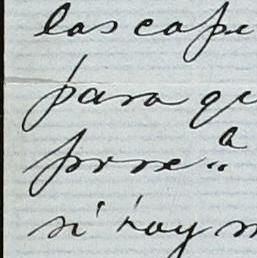 las cape
para qu
prre.a
si hay n